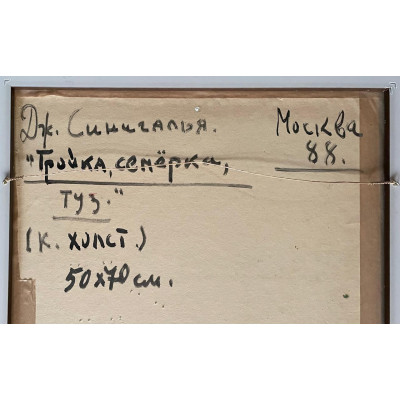 Дж. Синигалья. Москва
"Тройка, семёрка, 88.
туз."
(к. холст.)
50х70 см.